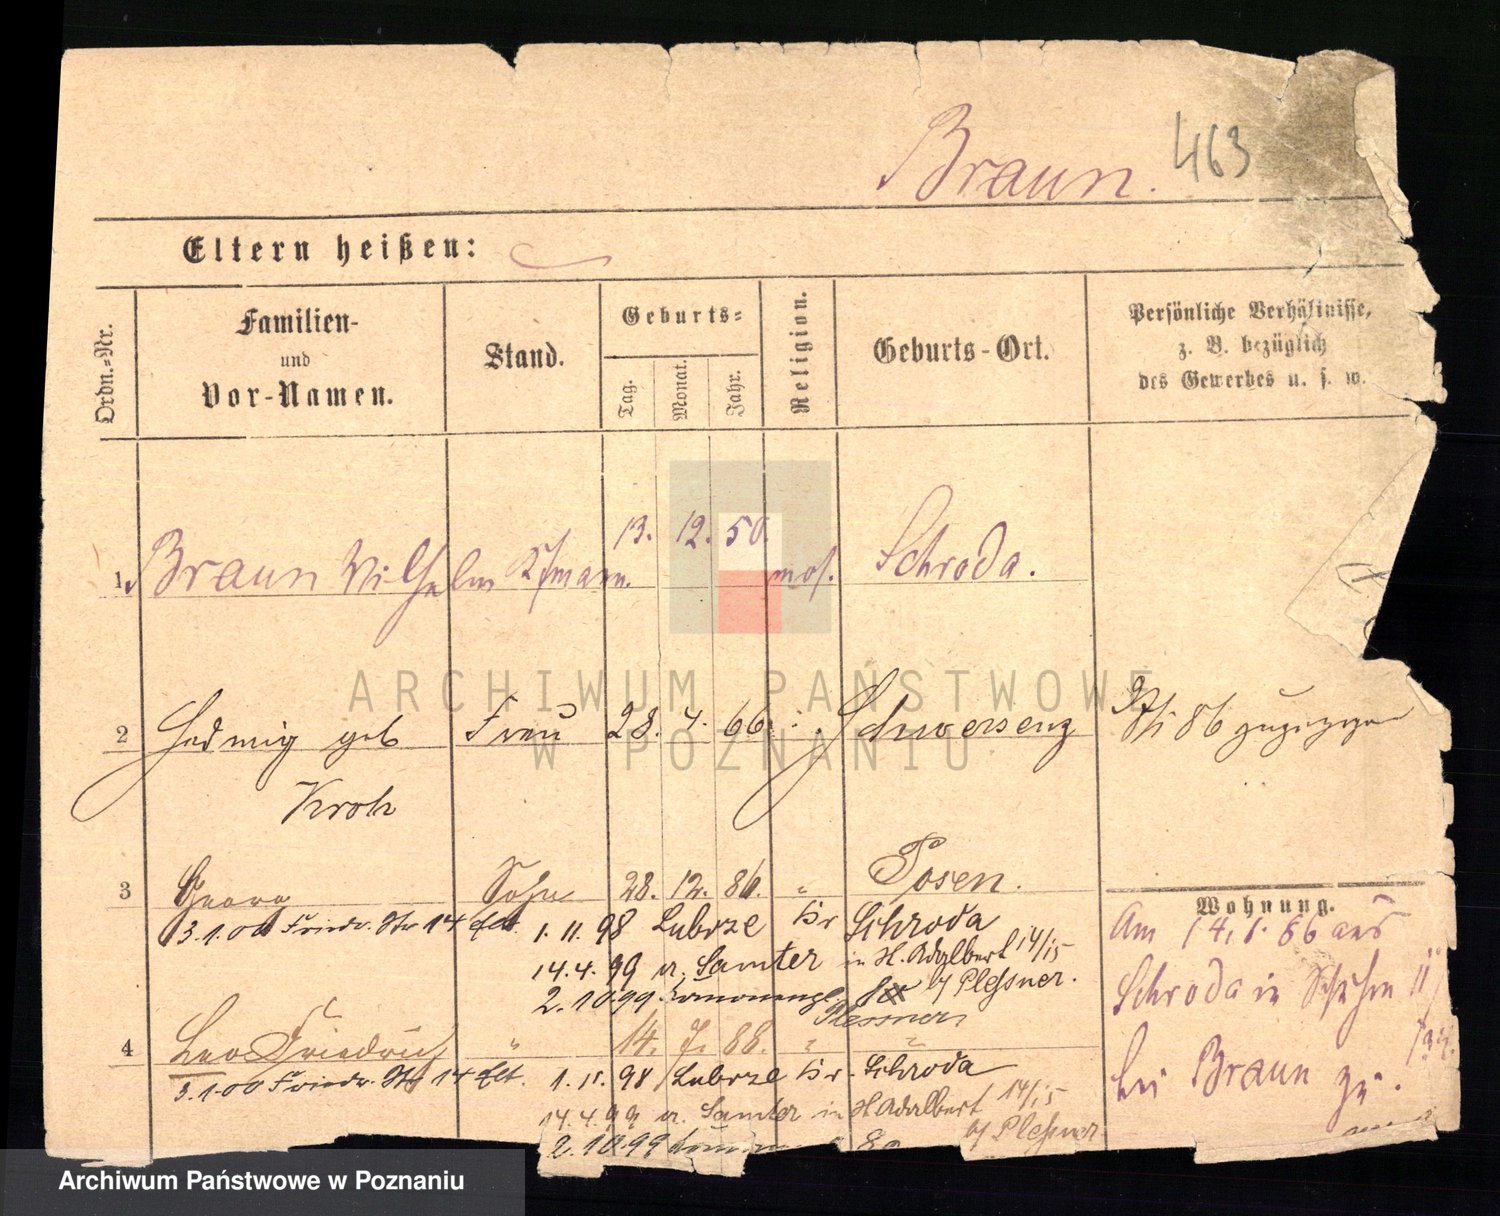 Braun. 463
Eltern heißen:
Ordn.-Nr.
Familien-
und
Vor-Namen.
Stand.
Geburts-
Tag.
Monat.
Jahr.
Religion.
Geburts-Ort.
Persönliche Verhältnisse,
z. B. bezüglich
des Gewerbes u. s. w.
1. Braun Wilhelm Kfmann. 13. 12. 50. mos. Schroda.
2 Hedwig geb Frau 28. 4. 66. Schwersenz 86 zugezogen
Kroh
3 Georg Sohn 28. 12. 86. " Posen.
3.1.00 Friedr. Str 14 Elt. 1.11.98 Lubrze Kr Schroda
14.4.99 v. Samter in H. Adalbert 14/15
2.10.99 by Plessner.
Plessner
4 Leo Friedrich " 14. 7. 88. " "
3.1.00 Friedr. Str 14 Elt. 1.11.98 Lubrze Kr. Schroda
14.4.99 v. Samter in H Adalbert 14/15
2.10.99 by Plessner
Wohnung.
Am 14. 86 aus
Schroda in
bei Braun zu.
ARCHIWUM PAŃSTWOWE
W POZNANIU
Archiwum Państwowe w Poznaniu